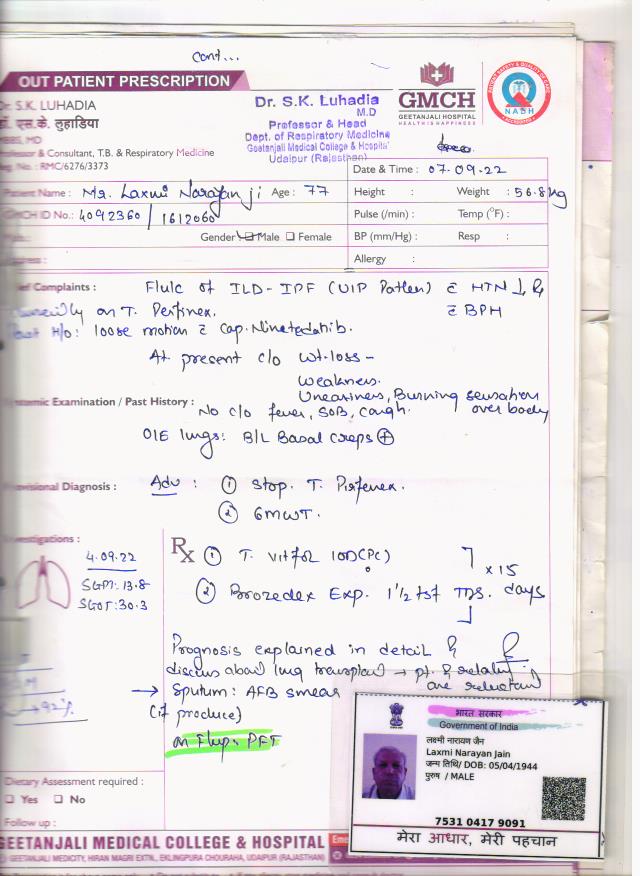 cont...
OUT PATIENT PRESCRIPTION
Dr. S.K. LUHADIA
डॉ. एस.के. लुहाडिया
MBBS, MD
Professor & Consultant, T.B. & Respiratory Medicine
Reg. No.: RMC/6276/3373
Dr. S.K. Luhadia
M.D
Professor & Head
Dept. of Respiratory Medicine
Geetanjali Medical College & Hospital
Udaipur (Rajasthan)
GMCH
GEETANJALI HOSPITAL
HEALTH IS HAPPINESS
NABH
Date & Time : 07.09.22
Patient Name : Mr. Laxmi Narayan ji Age : 77
Height : Weight : 56.8 kg
GMCH ID No.: 4092360 / 1612060
Pulse (/min) : Temp (°F) :
Gender Male Female
BP (mm/Hg) : Resp :
Allergy :
Chief Complaints : F/u/c of ILD-IPF (UIP Pattern) c HTN ↓ Rx
c BPH
on T. Pirfenex.
H/o: loose motion c Cap. Nintedanib.
At present c/o wt. loss -
weakness.
Uneasiness, Burning sensation over body
Systemic Examination / Past History :
No c/o fever, SOB, cough.
O/E lungs: B/L Basal creps ⊕
Provisional Diagnosis :
Adv : ① Stop. T. Pirfenex.
② 6MWT.
Investigations :
4.09.22
SGPT: 13.8
SGOT: 30.3
Rx ① T. Vitfol 10D (PC)
② Brozedex Exp. 1½ tsf TDS.
x 15 days
Prognosis explained in detail &
discuss about lung transplant → pt. & relative
are reluctant
→ Sputum: AFB smear
(if produce)
on F/up: PFT
92%
Dietary Assessment required :
Yes No
Follow up :
GEETANJALI MEDICAL COLLEGE & HOSPITAL
GEETANJALI MEDICITY, HIRAN MAGRI EXTN., EKLINGPURA CHOURAHA, UDAIPUR (RAJASTHAN)
भारत सरकार
Government of India
लक्ष्मी नारायण जैन
Laxmi Narayan Jain
जन्म तिथि/ DOB: 05/04/1944
पुरुष / MALE
7531 0417 9091
मेरा आधार, मेरी पहचान